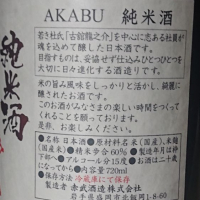 純米酒
AKABU 純米酒
若き杜氏「古舘龍之介」を中心に志ある社員が
魂を込めて醸した日本酒です。
目指すものは、妥協せず仕込みひとつひとつを
大切に日々進化する酒造りです。
米の旨み風味をしっかりと活かし、綺麗に
醸されたお酒です。
このお酒がみなさまの楽しい時間をつくって
くれることを願っております。
●名称 日本酒 ●原材料名 米(国産)、米麹(国
産米) ●精米歩合 60% ●製造年月は枠
下部へ ●アルコール分15度 ●お酒は二十歳
になってから ●内容量 720ml
●保存方法 冷蔵庫にて保存
製造者 赤武酒造株式会社
岩手県盛岡市北飯岡1-8-60